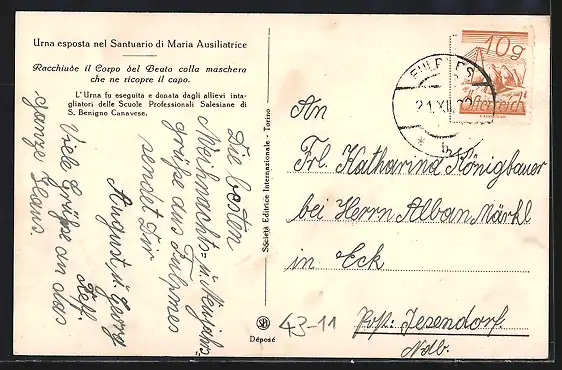 Urna esposta nel Santuario di Maria Ausiliatrice
Racchiude il Corpo del Beato colla maschera
che ne ricopre il capo.
L'Urna fu eseguita e donata dagli allievi inta-
gliatori delle Scuole Professionali Salesiane di
S. Benigno Canavese.
Die besten
Weihnachts- u. Neujahrs-
grüße aus Fulpmes
sendet Dir
August u. Georg
Viele Grüße an das
ganze Haus.
Società Editrice Internazionale - Torino
SEI
Déposé
10g
Österreich
FULPMES
21.XII.
* b
An
Frl. Katharina Königbauer
bei Herrn Alban Märkl
in Eck
Post: Jesendorf.
Ndb.
43-11